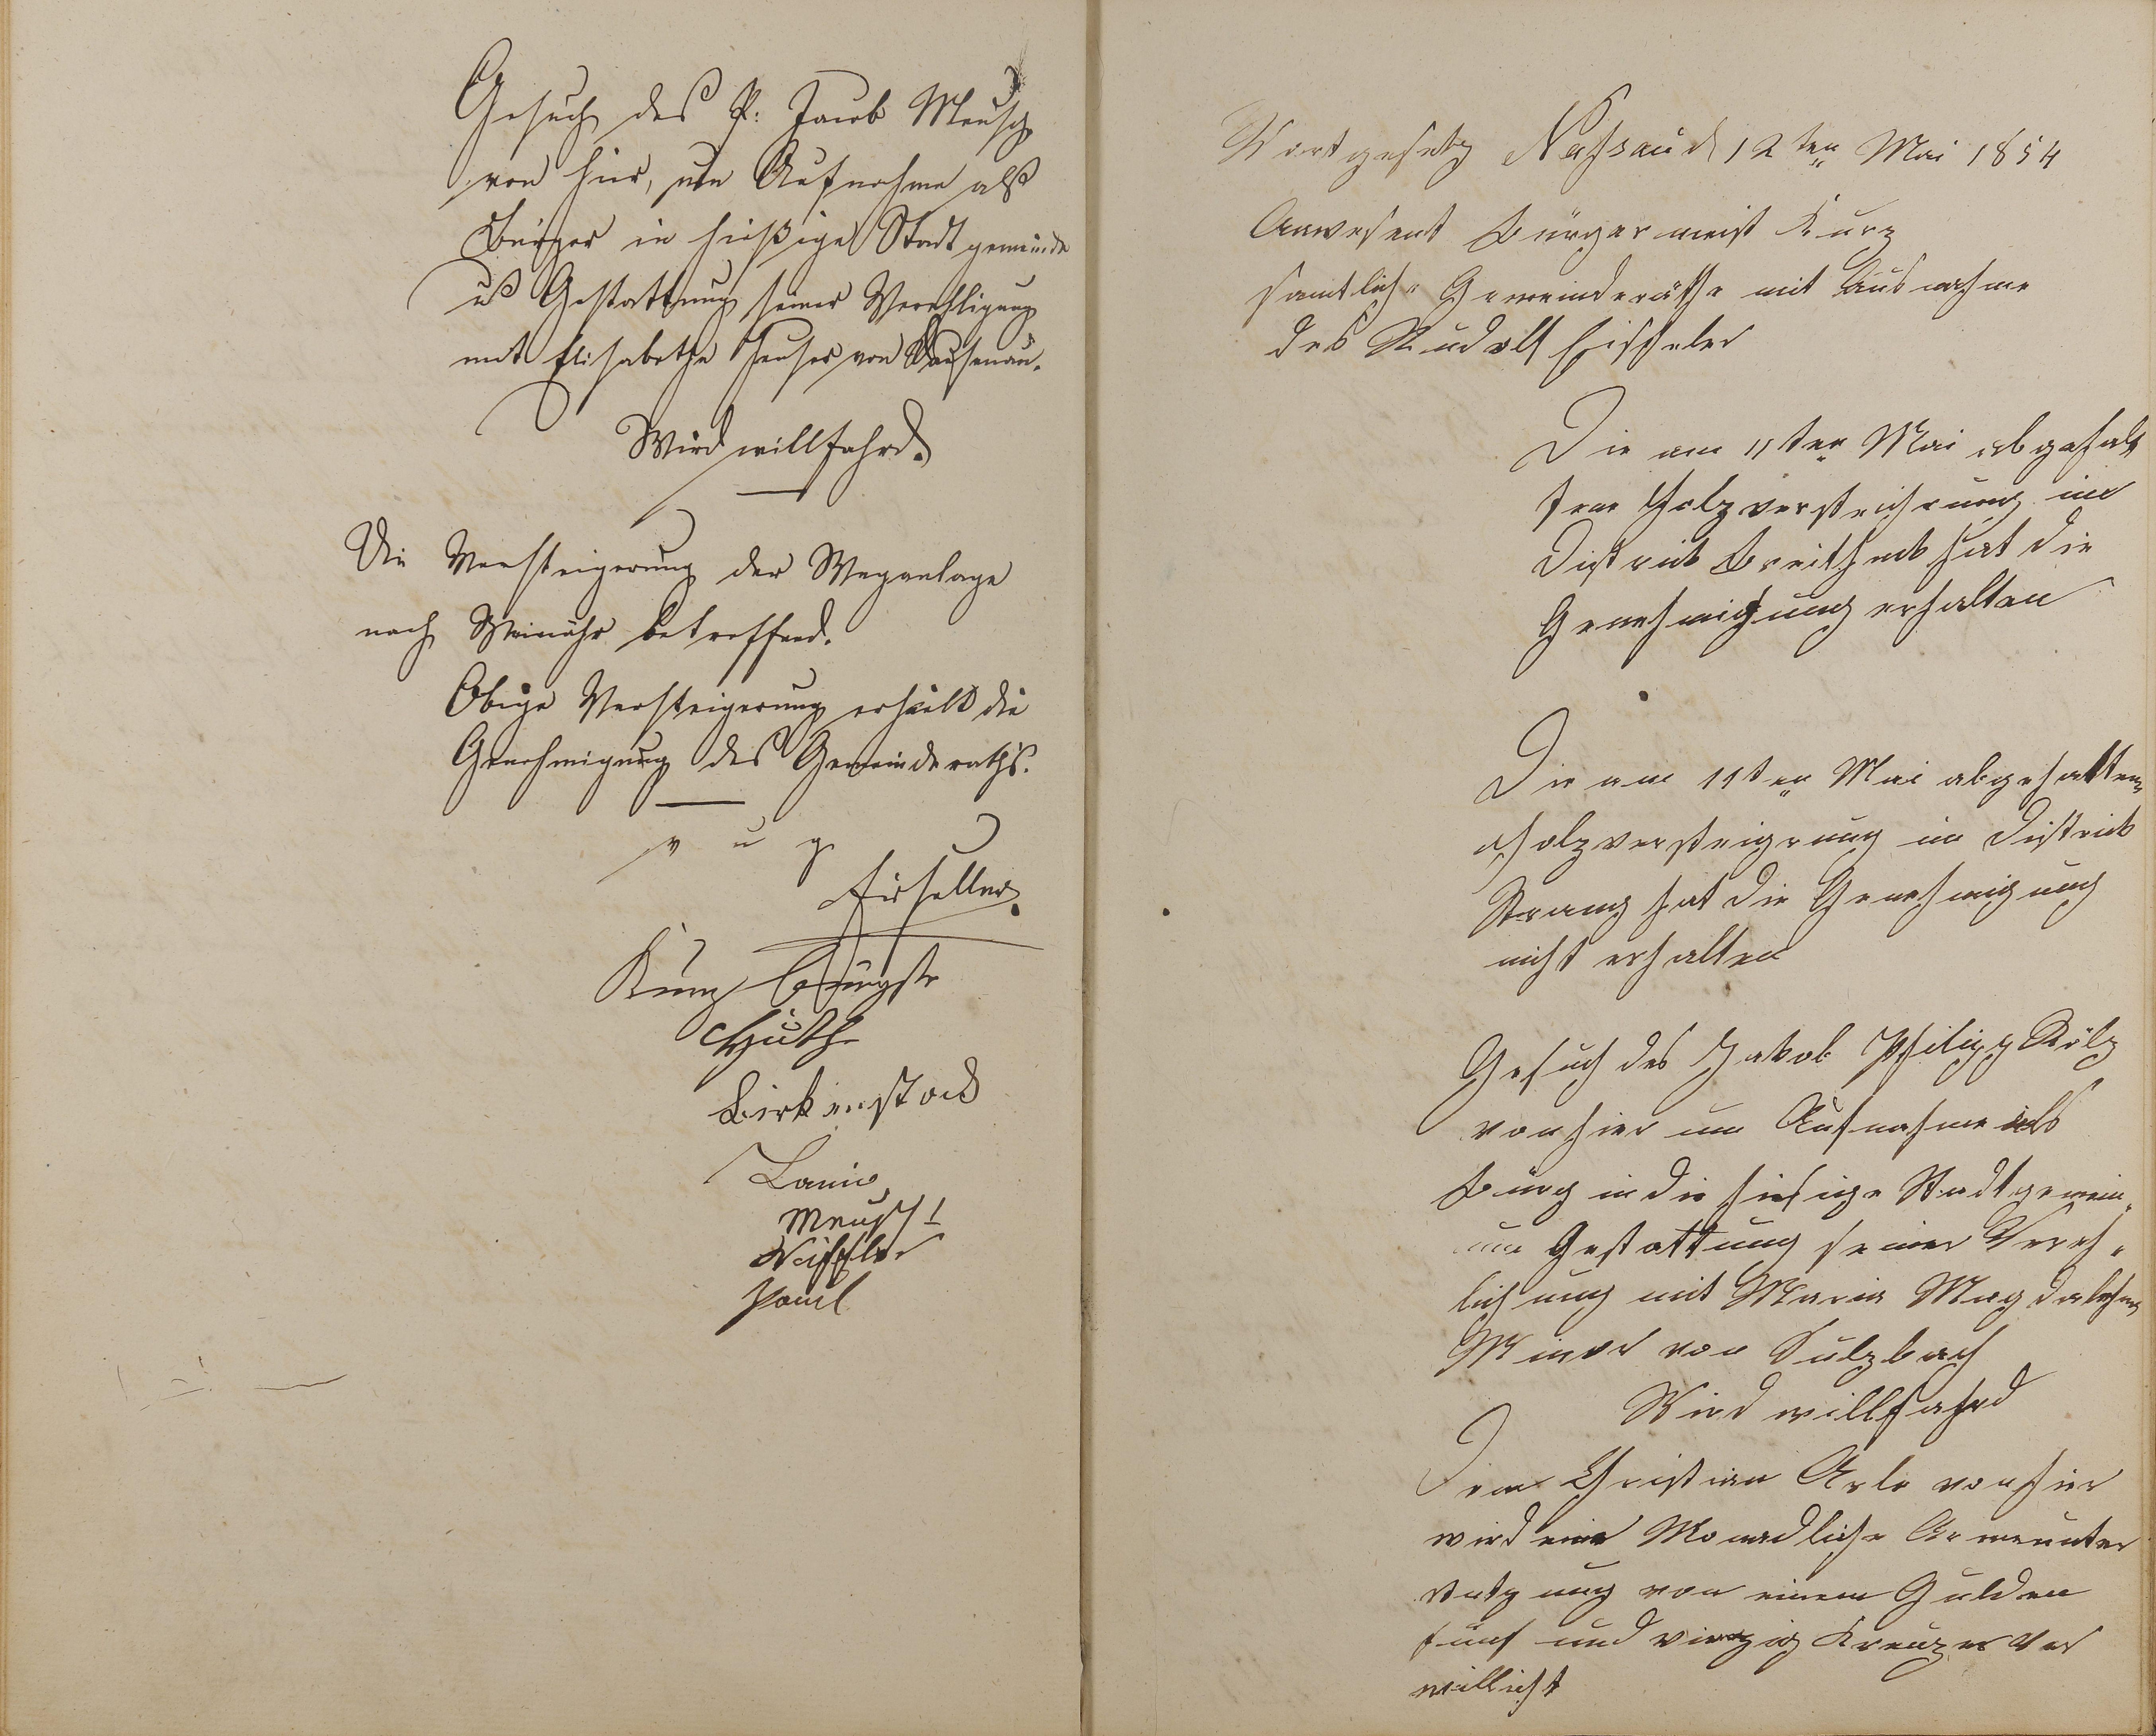 Gesuch des P: Jacob Meusch
von hier, um Aufnahme alß
Bürger in hießige Stadtgemeinde
u Gestattung seiner Verehligung
mit Elisabetha Heuser von Dausenau.
Wird willfahrd.
Die Versteigerung der Weganlage
nach Weinähr betreffend.
Obige Versteigerung erhält die
Genehmigung des Gemeinderaths.
v u g
Kunz Bürgstr
Huth
Birkenstock
Lanio
Meusch I
Paul
Nassau d 12ten Mai 1854
Anwesent Bürgermeist Kunz
samtliche Gemeinderäthe mit Ausnahme
des Rudolf
Die am 11ten Mai abgehalt
tene Holzversteicherung im
District Breitheck hat die
Genehmigung erhalten
Die am 11ten Mai abgehaltene
Holzversteigrung im District
Strang hat die Genehmigung
nicht erhalten
Gesuch des Jakob Philipp Kölz
von hier um Aufnahme als
Bürg in die hiesige Stadtgemein
um Gestattung seiner Vereh
lichung mit Maria Magdalehna
Minor von Sulzbach
Wird willfahrd
Dem Christian Arlo von hier
wird eine Monadliche Armeunter
stützung von einem Gulden
fünf und vierzig Kreuzer ver
willicht